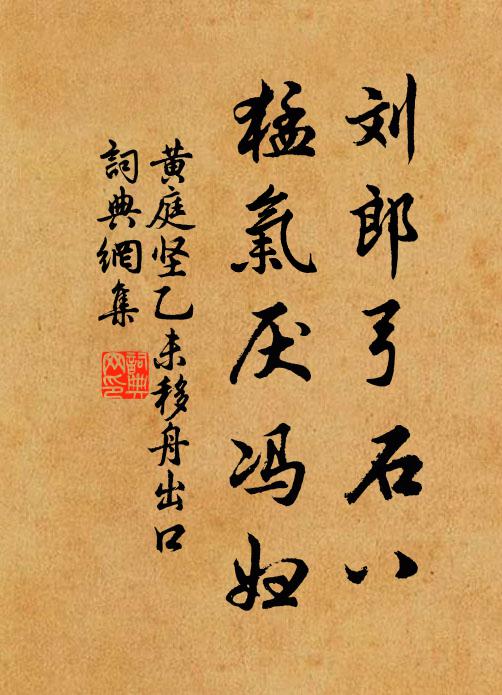 刘郎弓石八
猛氣厌冯妇
黄庭坚乙未移舟出口
詞典網集
詞典网印